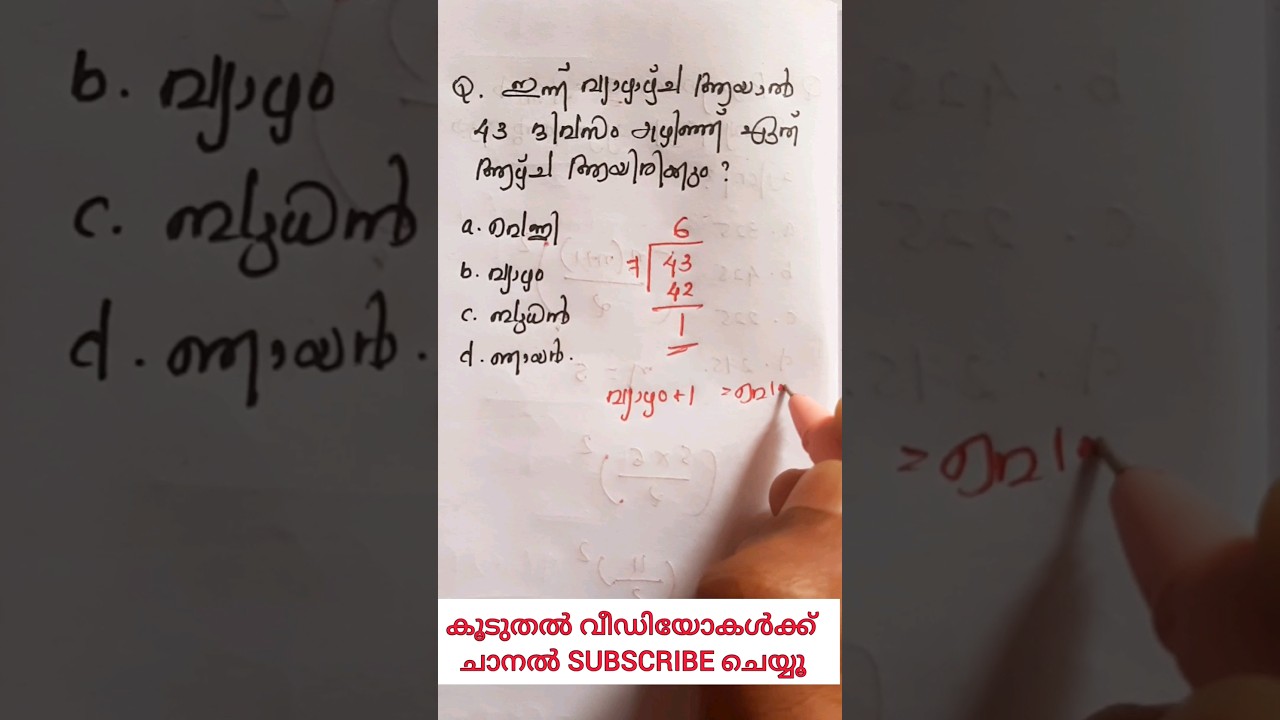 Q. ഇന്ന് വ്യാഴാഴ്ച ആയാൽ
43 ദിവസം കഴിഞ്ഞ് ഏത്
ആഴ്ച ആയിരിക്കും ?
a. വെള്ളി
b. വ്യാഴം
c. ബുധൻ
d. ഞായർ.
6
7 43
42
1
വ്യാഴം + 1 = വെ
കൂടുതൽ വീഡിയോകൾക്ക്
ചാനൽ SUBSCRIBE ചെയ്യൂ